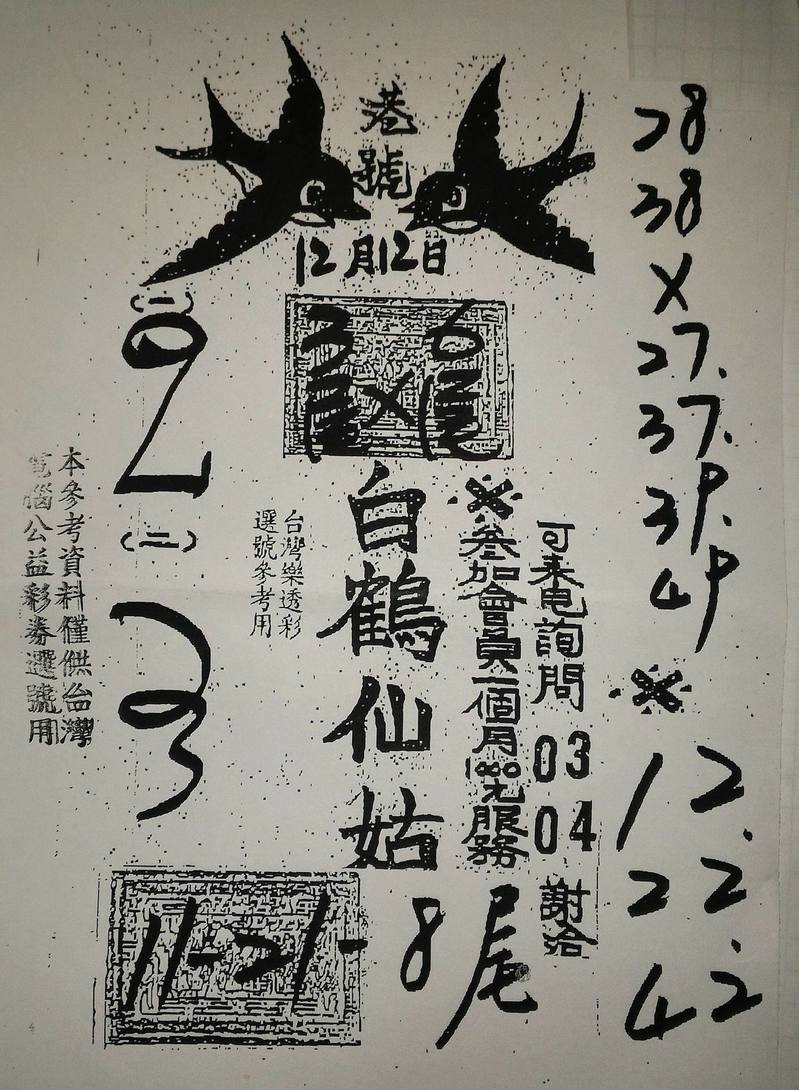 港號
12月12日
28
38
X
27.
37.
39.
49
※
12.
22.
42
可来电詢問 03 04 謝洽
※叁加會員一個月1000元服務
3尾X6尾
白鶴仙姑
台灣樂透彩
選號參考用
(一)
(二)
本參考資料僅供台灣
電腦公益彩券選號用
11-21-8尾